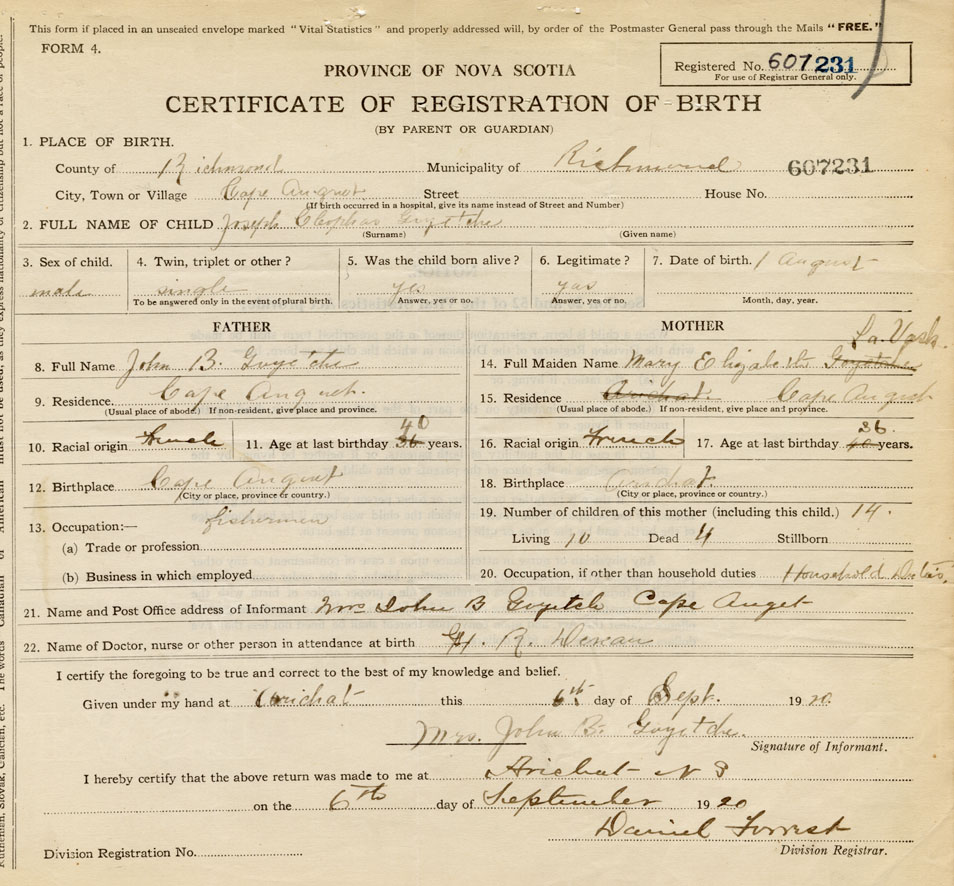 This form if placed in an unsealed envelope marked "Vital Statistics" and properly addressed will, by order of the Postmaster General pass through the Mails "FREE."
FORM 4.
Registered No. 607231
For use of Registrar General only.
PROVINCE OF NOVA SCOTIA
CERTIFICATE OF REGISTRATION OF BIRTH
(BY PARENT OR GUARDIAN)
1. PLACE OF BIRTH.
County of Richmond Municipality of Richmond 607231
City, Town or Village Cape Auguet Street House No.
(If birth occurred in a hospital, give its name instead of Street and Number)
2. FULL NAME OF CHILD Joseph Cleophas Goyetche
(Surname) (Given name)
3. Sex of child. 4. Twin, triplet or other? 5. Was the child born alive? 6. Legitimate? 7. Date of birth. 1 August
male single yes yes
To be answered only in the event of plural birth. Answer, yes or no. Answer, yes or no. Month, day, year.
FATHER MOTHER
8. Full Name John B. Goyetche 14. Full Maiden Name Mary Elizabeth
9. Residence. Cape Auguet. 15. Residence Arichat. Cape Auguet
(Usual place of abode.) If non-resident, give place and province. (Usual place of abode.) If non-resident, give place and province.
10. Racial origin French 11. Age at last birthday 36 40 years. 16. Racial origin French 17. Age at last birthday 40 36 years.
12. Birthplace Cape Auguet 18. Birthplace Arichat
(City or place, province or country.) (City or place, province or country.)
13. Occupation:— fisherman 19. Number of children of this mother (including this child.) 14.
(a) Trade or profession Living 10 Dead 4 Stillborn
(b) Business in which employed 20. Occupation, if other than household duties Household Duties
21. Name and Post Office address of Informant Mrs John B Goyetch Cape Auget
22. Name of Doctor, nurse or other person in attendance at birth R.
I certify the foregoing to be true and correct to the best of my knowledge and belief.
Given under my hand at Arichat this 6th day of Sept. 1920
Mrs. John B. Goyetche.
Signature of Informant.
I hereby certify that the above return was made to me at Arichat N S
on the 6th day of September 1920
Daniel Forrest
Division Registration No. Division Registrar.